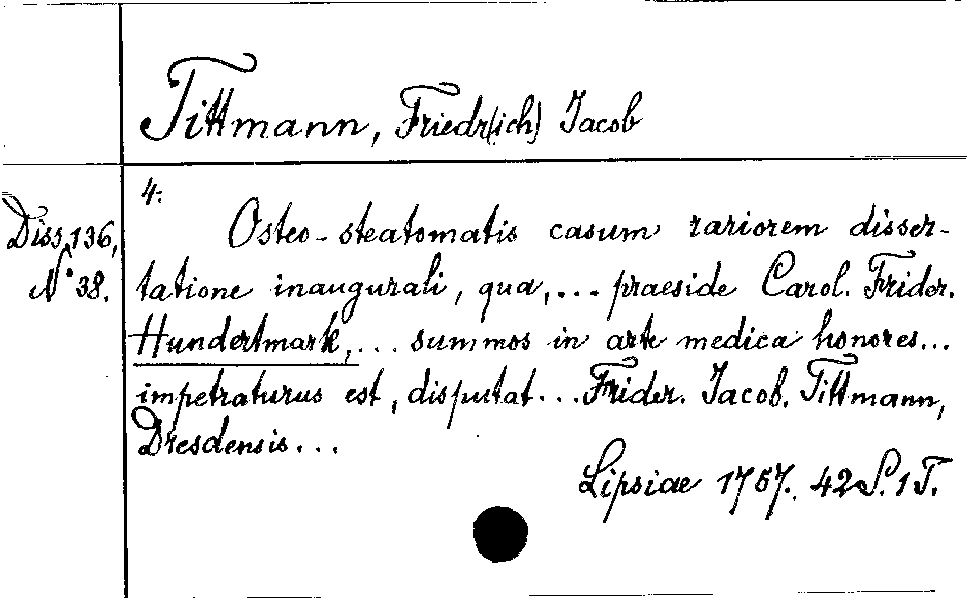 Tittmann, Friedr(ich) Jacob
Diss. 136,
N° 38.
4:
Osteo-steatomatis casum rariorem disser-
tatione inaugurali, qua,... praeside Carol. Frider.
Hundertmark,... summos in arte medica honores...
impetraturus est, disputat... Frider. Jacob. Tittmann,
Dresdensis...
Lipsiae 1757. 42 S. 1 T.